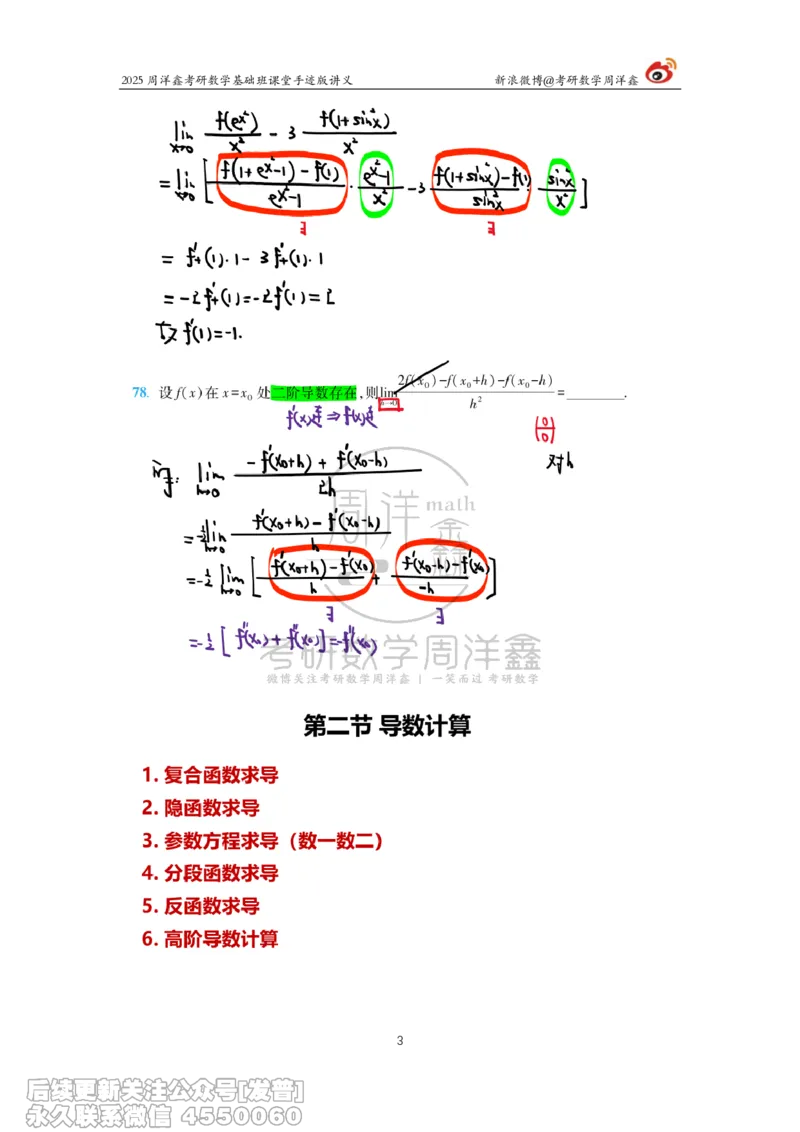 2025 周洋鑫考研数学基础班课堂手迹版讲义 新浪微博@考研数学周洋鑫
lim x→0 f(e^{x²})/x² - 3 f(1+sin²x)/x²
= lim x→0 [ (f(1+e^{x²}-1) - f(1))/(e^{x²}-1) · (e^{x²}-1)/x² - 3 (f(1+sin²x) - f(1))/sin²x · sin²x/x² ]
∃ ∃
= f'₊(1)·1 - 3f'₊(1)·1
= -2f'₊(1) = -2f'(1) = 2
f'(1) = -1.
78. 设 f(x) 在 x=x₀ 处二阶导数存在,则 lim h→0 (2f(x₀)-f(x₀+h)-f(x₀-h))/h² = ________.
f'(x)连 ⇒ f(x)连
(0/0)
对h
lim h→0 (-f'(x₀+h) + f'(x₀-h))/2h
= -½ lim h→0 (f'(x₀+h) - f'(x₀-h))/h
= -½ lim h→0 [ (f'(x₀+h) - f'(x₀))/h + (f'(x₀-h) - f'(x₀))/-h ]
∃ ∃
= -½ [ f''(x₀) + f''(x₀) ] = -f''(x₀)
周洋鑫 math
考研数学周洋鑫
微博关注考研数学周洋鑫 | 一笑而过 考研数学
第二节 导数计算
1. 复合函数求导
2. 隐函数求导
3. 参数方程求导（数一数二）
4. 分段函数求导
5. 反函数求导
6. 高阶导数计算
3
后续更新关注公众号[发普]
永久联系微信 4550060